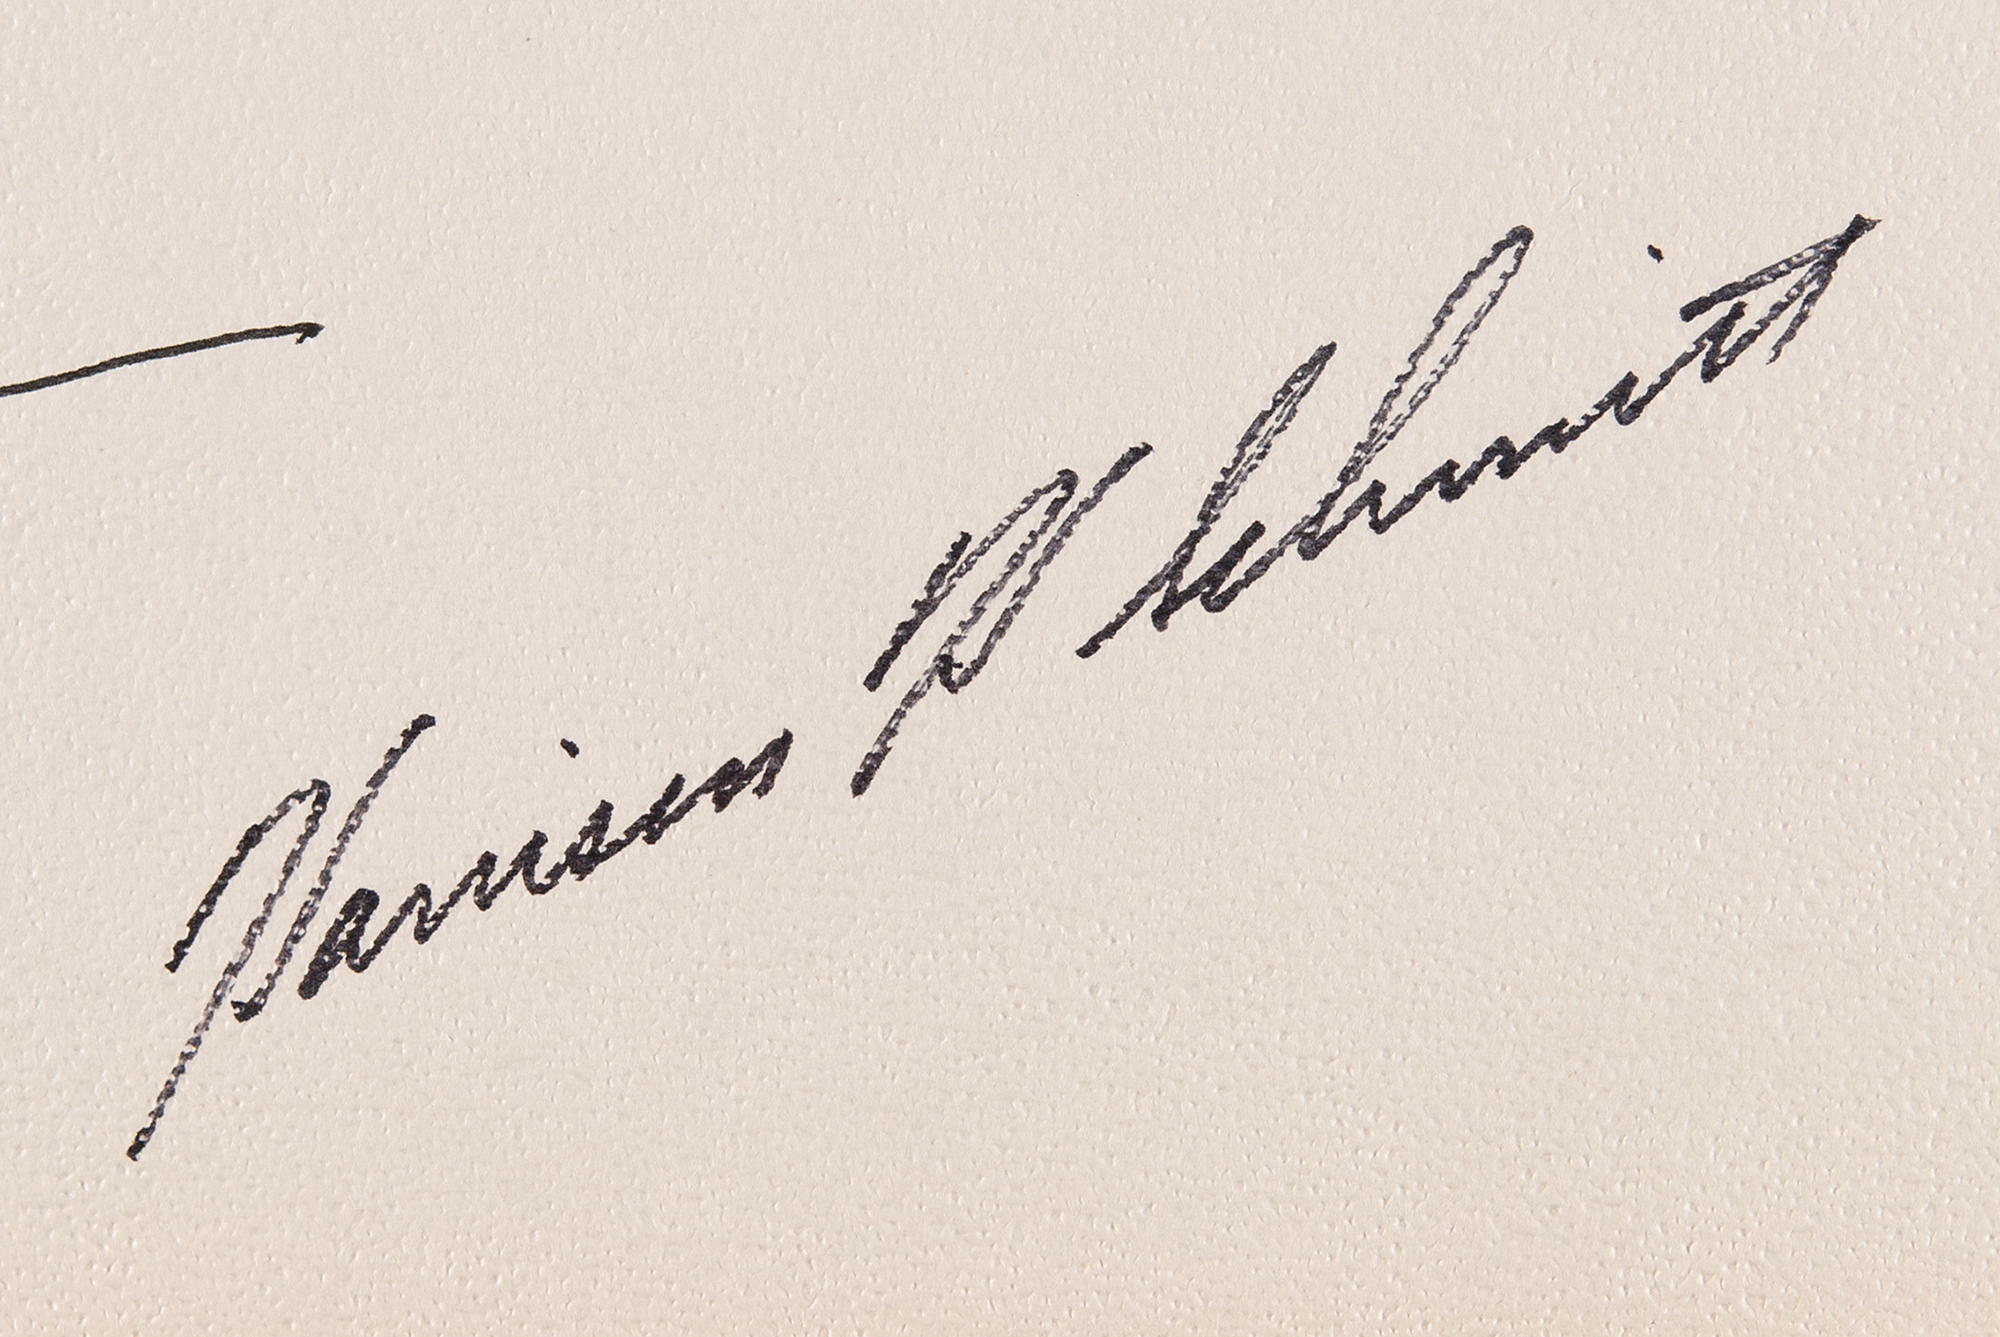 Harrison H Schmitt